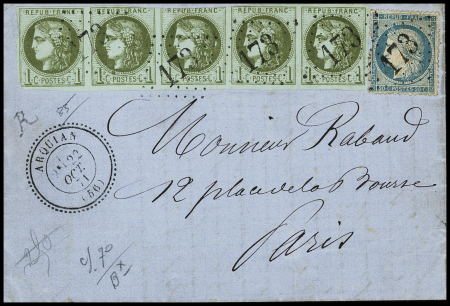 REPUB·FRANC· REPUB·FRANC· REPUB·FRANC· REPUB·FRANC· REPUB·FRANC· REPUB·FRANC·
173 173 173 173 173
1 C·POSTES·C·1 C·POSTES·C·1 C·POSTES·C·1 C·POSTES·C·1 C·POSTES·C·1 20·C·POSTES·20·C
85
ARQUIAN
22
OCT
71
(56)
Monsieur Rabaud
12 place de la Bourse
Paris
c/.70